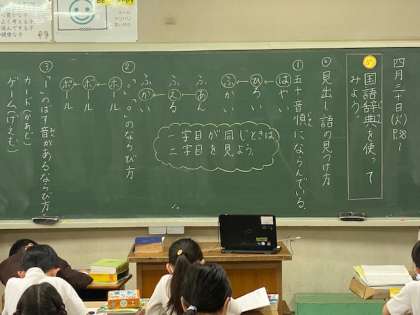 四月三十日(火)P.28〜
国語辞典を使って
みよう。
見出し語の見つけ方
① 五十音順にならんでいる。
はやい
ひろい
ふかい
ふあん
ふえる
ふかい
一字目が同じときは
二字目を見よう
② 「゛」「゜」のならび方
ホール
ボール
ポール
③ 「ー」のばす音があるならび方
カード(かあど)
ゲーム(げえむ)